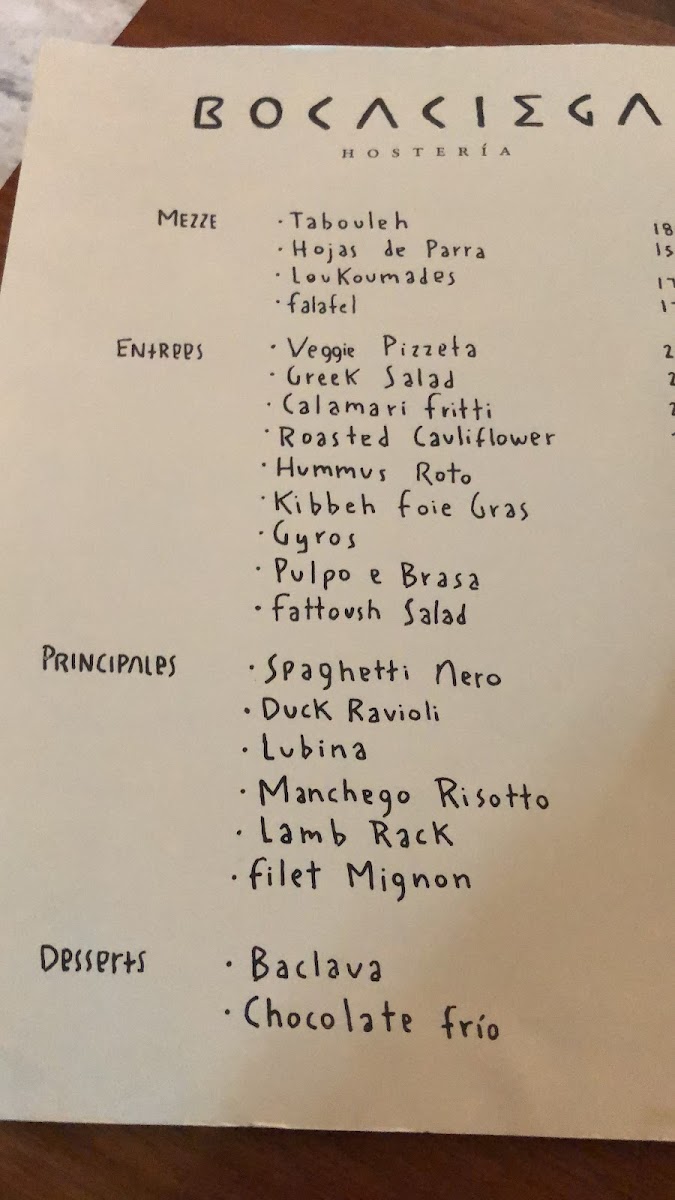 BOCACIEGA
HOSTERÍA
MEZZE · Tabouleh 18
· Hojas de Parra 15
· Loukoumades
· falafel
ENtRees · Veggie Pizzeta
· Greek Salad
· Calamari fritti
· Roasted Cauliflower
· Hummus Roto
· Kibbeh foie Gras
· Gyros
· Pulpo e Brasa
· fattoush Salad
PRINCIPALeS · Spaghetti Nero
· Duck Ravioli
· Lubina
· Manchego Risotto
· Lamb Rack
· filet Mignon
Desserts · Baclava
· Chocolate frío